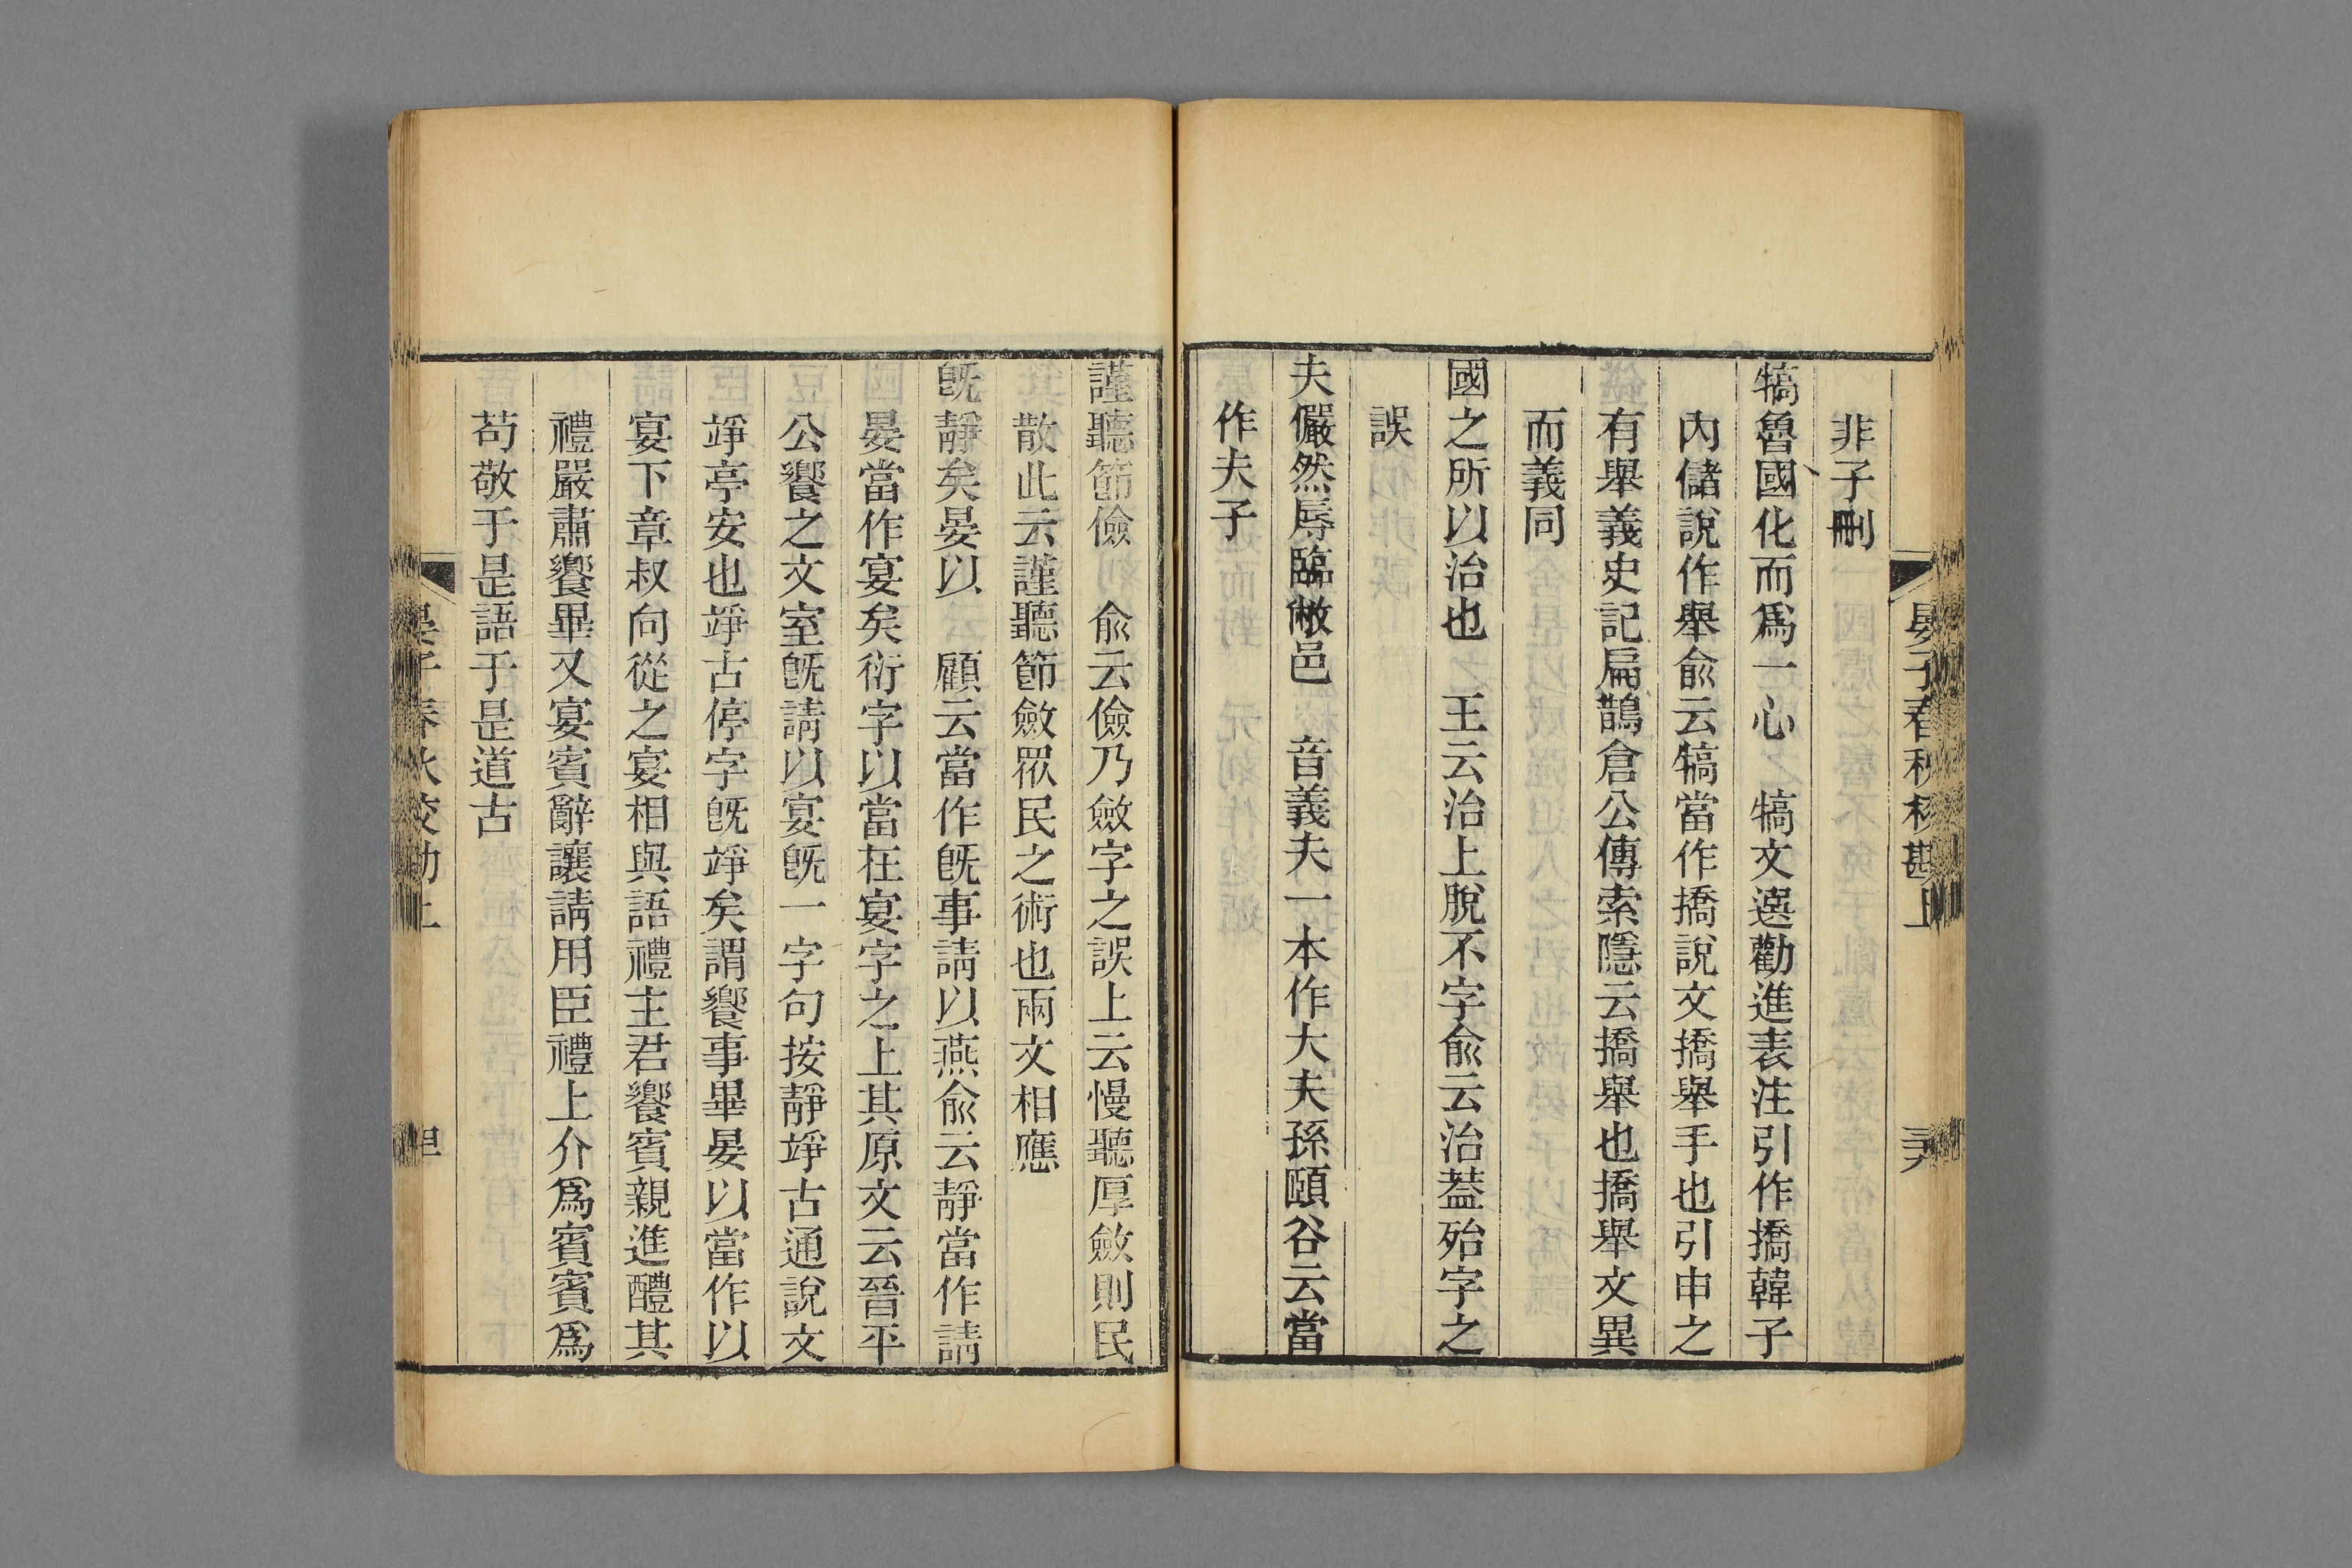 晏子春秋校勘上
非子刪
犒魯國化而爲一心　犒文選勸進表注引作撟韓子
內儲說作舉俞云犒當作撟說文撟舉手也引申之
有舉義史記扁鵲倉公傳索隱云撟舉也撟舉文異
而義同
國之所以治也　王云治上脫不字俞云治蓋殆字之
誤
夫儼然辱臨敝邑　音義夫一本作大夫孫頤谷云當
作夫子
謹聽節儉　俞云儉乃斂字之誤上云慢聽厚斂則民
散此云謹聽節斂眾民之術也兩文相應
旣靜矣晏以　顧云當作旣事請以燕俞云靜當作請
晏當作宴矣衍字以當在宴字之上其原文云晉平
公饗之文室旣請以宴旣一字句按靜竫古通說文
竫亭安也竫古停字旣竫矣謂饗事畢晏以當作以
宴下章叔向從之宴相與語禮主君饗賓親進醴其
禮嚴肅饗畢又宴賓辭讓請用臣禮上介爲賓賓爲
苟敬于是語于是道古
晏子春秋校勘上